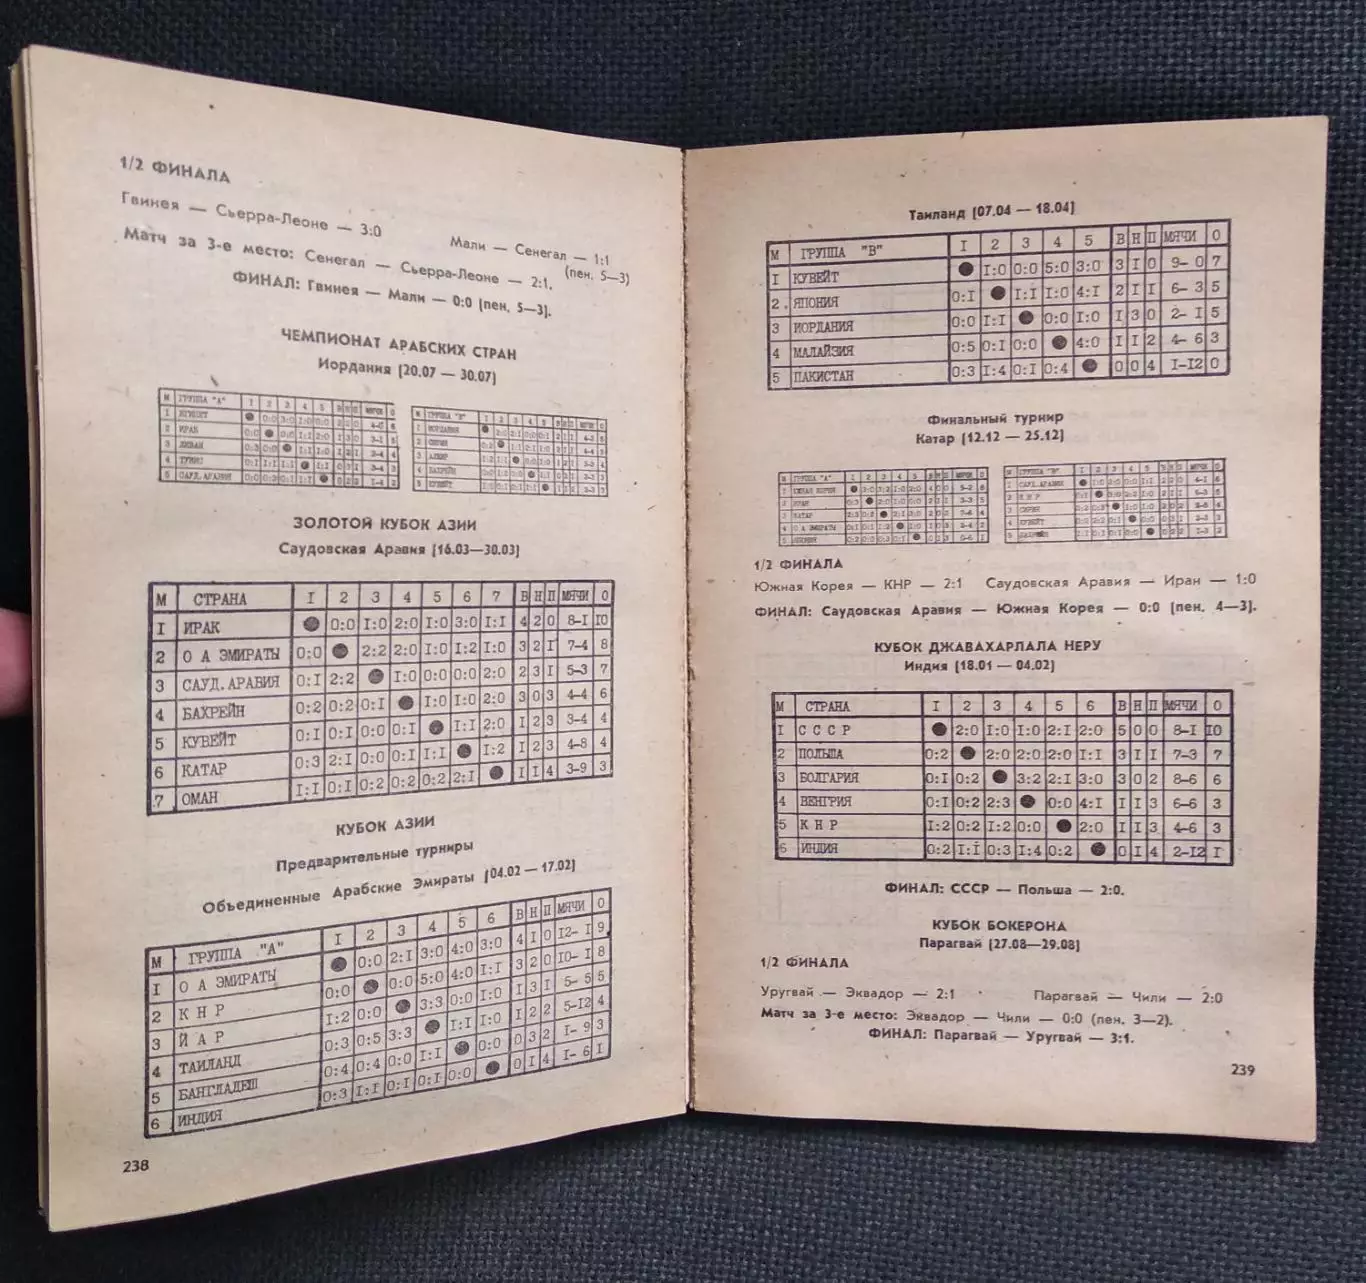 1/2 ФИНАЛА
Гвинея — Сьерра-Леоне — 3:0
Мали — Сенегал — 1:1
(пен. 5—3)
Матч за 3-е место: Сенегал — Сьерра-Леоне — 2:1.
ФИНАЛ: Гвинея — Мали — 0:0 (пен. 5—3).
ЧЕМПИОНАТ АРАБСКИХ СТРАН
Иордания (20.07 — 30.07)
М ГРУППА "А" 1 2 3 4 5 В Н П МЯЧИ О
ИРАК
САУД.АРАВИЯ
М ГРУППА "В" 1 2 3 4 5 В Н П МЯЧИ О
ИОРДАНИЯ
СИРИЯ
АЛЖИР
БАХРЕЙН
КУВЕЙТ
ЗОЛОТОЙ КУБОК АЗИИ
Саудовская Аравия (16.03—30.03)
М СТРАНА I 2 3 4 5 6 7 В Н П МЯЧИ О
I ИРАК 0:0 I:0 2:0 I:0 3:0 I:I 4 2 0 8-I IO
2 О А ЭМИРАТЫ 0:0 2:2 2:0 I:0 I:2 I:0 3 2 I 7-4 8
3 САУД.АРАВИЯ 0:I 2:2 I:0 0:0 0:0 2:0 2 3 I 5-3 7
4 БАХРЕЙН 0:2 0:2 0:I I:0 I:0 2:0 3 0 3 4-4 6
5 КУВЕЙТ 0:I 0:I 0:0 0:I I:I 2:0 I 2 3 3-4 4
6 КАТАР 0:3 2:I 0:0 0:I I:I I:2 I 2 3 4-8 4
7 ОМАН I:I 0:I 0:2 0:2 0:2 2:I I I 4 3-9 3
КУБОК АЗИИ
Предварительные турниры
Объединенные Арабские Эмираты (04.02 — 17.02)
М ГРУППА "А" I 2 3 4 5 6 В Н П МЯЧИ О
I О А ЭМИРАТЫ 0:0 2:I 3:0 4:0 3:0 4 I 0 I2- I 9
2 К Н Р 0:0 0:0 5:0 4:0 I:I 3 2 0 IO- I 8
3 Й А Р I:2 0:0 3:3 0:0 I:0 I 3 I 5- 5 5
4 ТАИЛАНД 0:3 0:5 3:3 I:I I:0 I 2 2 5-I2 4
5 БАНГЛАДЕШ 0:4 0:4 0:0 I:I 0:0 0 3 2 I- 9 3
6 ИНДИЯ 0:3 I:I 0:I 0:I 0:0 0 I 4 I- 6 I
238
Таиланд (07.04 — 18.04)
М ГРУППА "В" I 2 3 4 5 В Н П МЯЧИ О
I КУВЕЙТ I:0 0:0 5:0 3:0 3 I 0 9- 0 7
2. ЯПОНИЯ 0:I I:I I:0 4:I 2 I I 6- 3 5
3 ИОРДАНИЯ 0:0 I:I 0:0 I:0 I 3 0 2- I 5
4 МАЛАЙЗИЯ 0:5 0:I 0:0 4:0 I I 2 4- 6 3
5 ПАКИСТАН 0:3 I:4 0:I 0:4 0 0 4 I-I2 0
Финальный турнир
Катар (12.12 — 25.12)
М ГРУППА "А" 1 2 3 4 5 В Н П МЯЧИ О
ЮЖНАЯ КОРЕЯ
ИРАН
КАТАР
О А ЭМИРАТЫ
ЯПОНИЯ
М ГРУППА "В" 1 2 3 4 5 В Н П МЯЧИ О
САУД.АРАВИЯ
К Н Р
СИРИЯ
КУВЕЙТ
БАХРЕЙН
1/2 ФИНАЛА
Южная Корея — КНР — 2:1 Саудовская Аравия — Иран — 1:0
ФИНАЛ: Саудовская Аравия — Южная Корея — 0:0 (пен. 4—3).
КУБОК ДЖАВАХАРЛАЛА НЕРУ
Индия (18.01 — 04.02)
М СТРАНА I 2 3 4 5 6 В Н П МЯЧИ О
I С С С Р 2:0 I:0 I:0 2:I 2:0 5 0 0 8-I IO
2 ПОЛЬША 0:2 2:0 2:0 2:0 I:I 3 I I 7-3 7
3 БОЛГАРИЯ 0:I 0:2 3:2 2:I 3:0 3 0 2 8-6 6
4 ВЕНГРИЯ 0:I 0:2 2:3 0:0 4:I I I 3 6-6 3
5 К Н Р I:2 0:2 I:2 0:0 2:0 I I 3 4-6 3
6 ИНДИЯ 0:2 I:I 0:3 I:4 0:2 0 I 4 2-I2 I
ФИНАЛ: СССР — Польша — 2:0.
КУБОК БОКЕРОНА
Парагвай (27.08—29.08)
1/2 ФИНАЛА
Уругвай — Эквадор — 2:1 Парагвай — Чили — 2:0
Матч за 3-е место: Эквадор — Чили — 0:0 (пен. 3—2).
ФИНАЛ: Парагвай — Уругвай — 3:1.
239